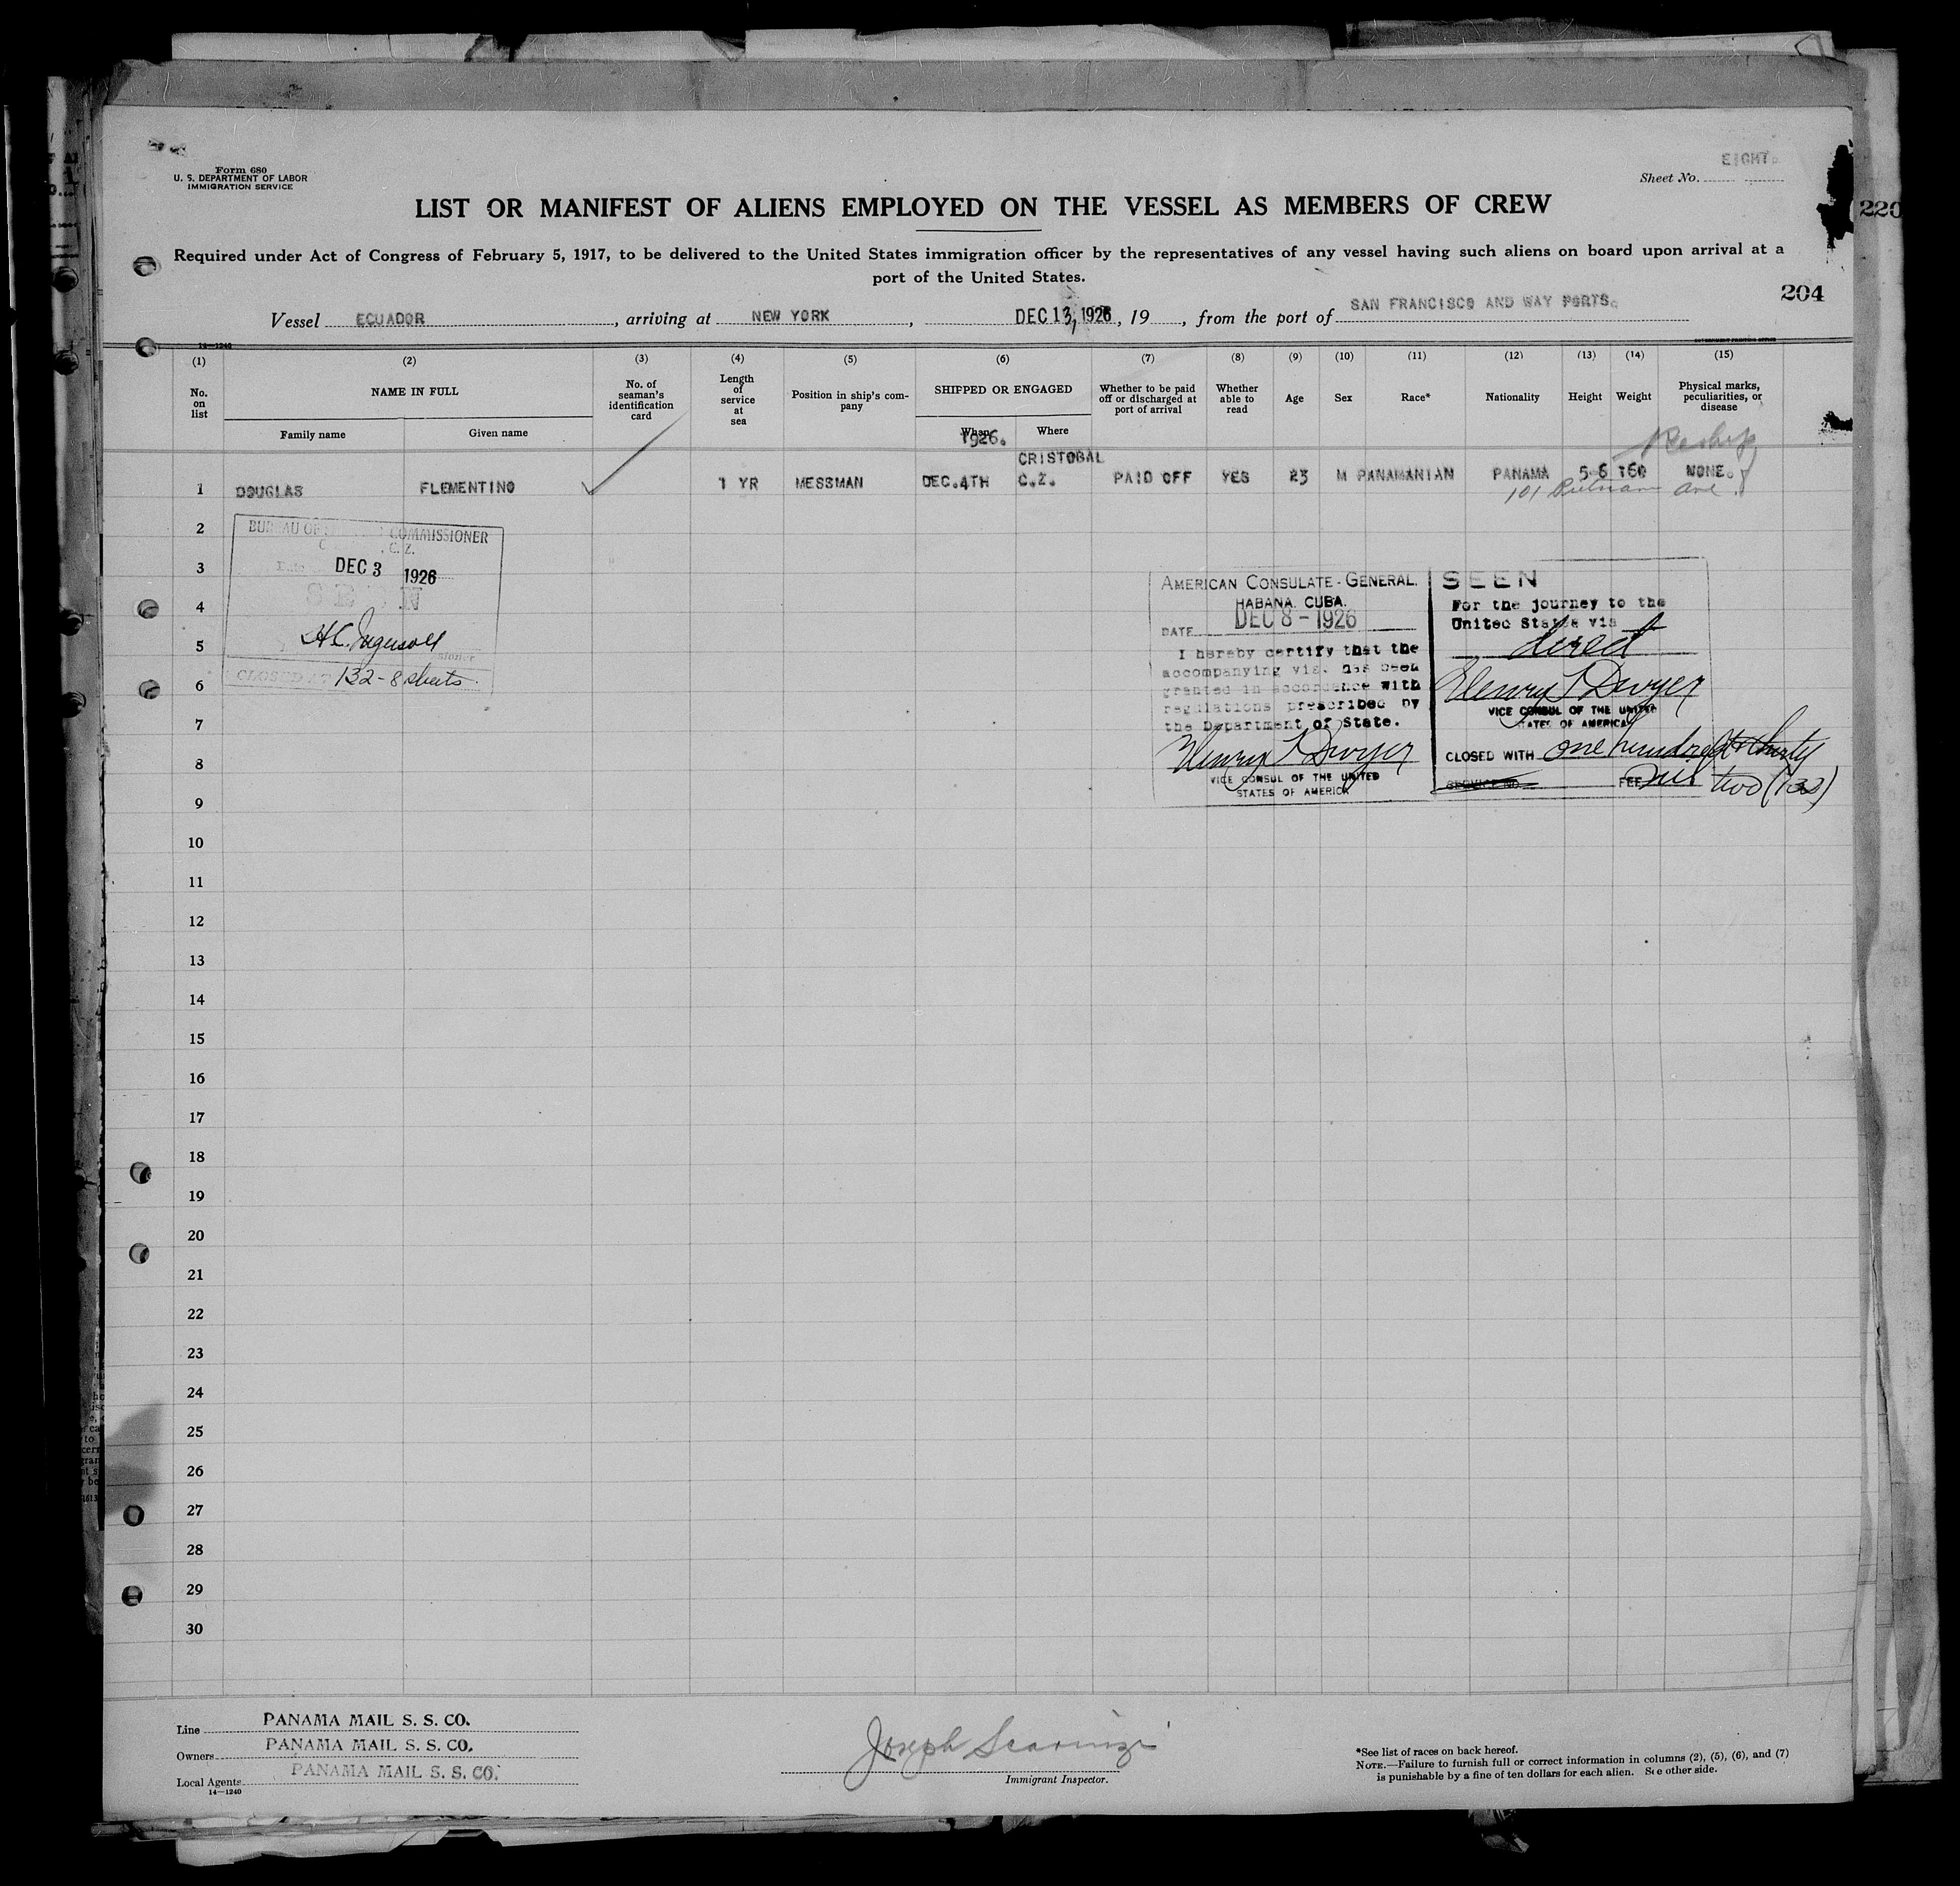 Form 680
U. S. DEPARTMENT OF LABOR
IMMIGRATION SERVICE
EIGHT.
Sheet No.
LIST OR MANIFEST OF ALIENS EMPLOYED ON THE VESSEL AS MEMBERS OF CREW
220
Required under Act of Congress of February 5, 1917, to be delivered to the United States immigration officer by the representatives of any vessel having such aliens on board upon arrival at a
port of the United States.
204
Vessel ECUADOR, arriving at NEW YORK, DEC 13, 1926, 19, from the port of SAN FRANCISCO AND WAY PORTS.
14—1240
(1) (2) (3) (4) (5) (6) (7) (8) (9) (10) (11) (12) (13) (14) (15)
No. on list
NAME IN FULL
Family name
Given name
No. of seaman's identification card
Length of service at sea
Position in ship's com-pany
SHIPPED OR ENGAGED
When
Where
Whether to be paid off or discharged at port of arrival
Whether able to read
Age
Sex
Race*
Nationality
Height
Weight
Physical marks, peculiarities, or disease
1926.
Reship
CRISTOBAL
1 DOUGLAS FLEMENTINO 1 YR MESSMAN DEC.4TH C.Z. PAID OFF YES 23 M PANAMANIAN PANAMA 5-6 160 NONE.
101 Putnam Ave
2
3
4
5
6
7
8
9
10
11
12
13
14
15
16
17
18
19
20
21
22
23
24
25
26
27
28
29
30
BUREAU OF COMMISSIONER
C. Z.
Date DEC 3 1926
SEEN
H.C. Ingersoll
CLOSED AT 132-8 sheets.
AMERICAN CONSULATE-GENERAL.
HABANA. CUBA.
DATE DEC 8-1926
I hereby certify that the
accompanying visa has been
granted in accordance with
regulations prescribed by
the Department of State.
Henry T Dwyer
VICE CONSUL OF THE UNITED
STATES OF AMERICA
SEEN
For the journey to the
United States via
direct
Henry T Dwyer
VICE CONSUL OF THE UNITED
STATES OF AMERICA
CLOSED WITH one hundred & thirty
SERVICE NO. FEE Nil two (132)
Line PANAMA MAIL S. S. CO.
Owners PANAMA MAIL S. S. CO.
Local Agents PANAMA MAIL S. S. CO.
14—1240
Joseph Scarinzi
Immigrant Inspector.
*See list of races on back hereof.
NOTE.—Failure to furnish full or correct information in columns (2), (5), (6), and (7)
is punishable by a fine of ten dollars for each alien. See other side.